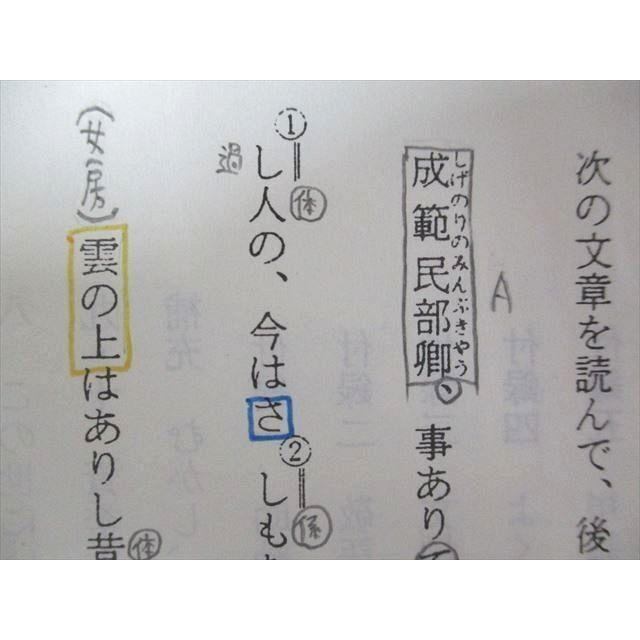 次の文章を読んで、後
A
しげのりのみんぶきやう
成範民部卿、事あり
①
体
し人の、今はさしも
過
②
係
(女房)
雲の上はありし昔
体